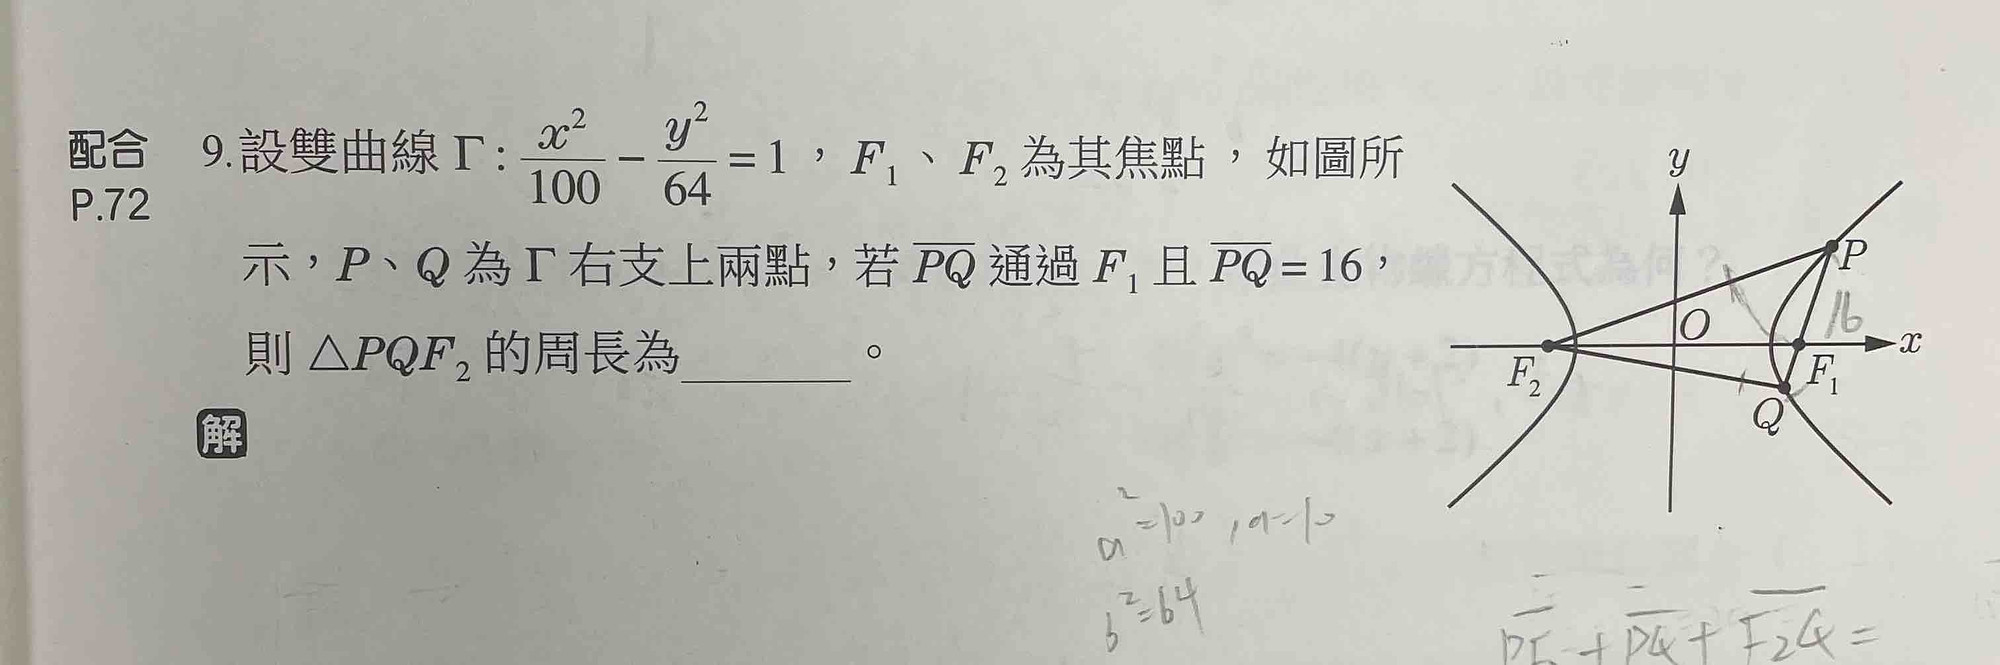 配合
P.72
9.設雙曲線 Γ: x²/100 − y²/64 = 1，F₁、F₂ 為其焦點，如圖所
示，P、Q 為 Γ 右支上兩點，若 PQ 通過 F₁ 且 PQ = 16，
則 △PQF₂ 的周長為______。
解
y
P
16
O
x
F₂
F₁
Q
a²=100, a=10
b²=64
PF₂+PQ+F₂Q=